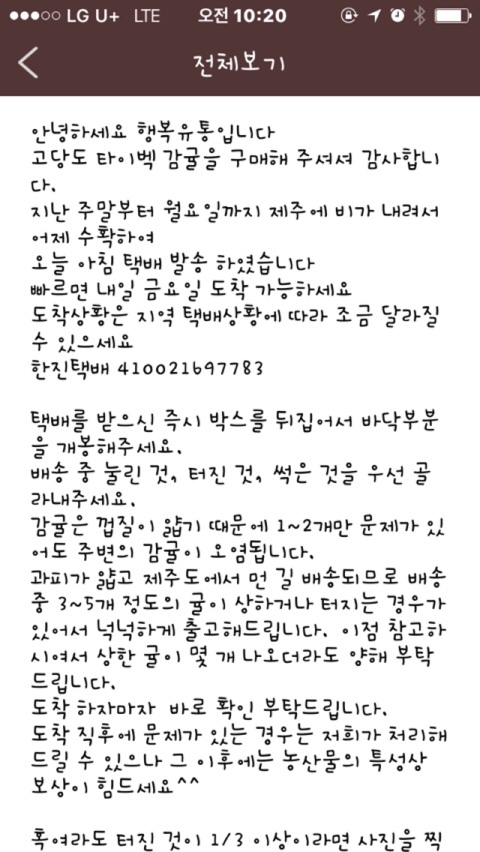 LG U+ LTE 오전 10:20
전체보기
안녕하세요 행복유통입니다
고당도 타이벡 감귤을 구매해 주셔서 감사합니
다.
지난 주말부터 월요일까지 제주에 비가 내려서
어제 수확하여
오늘 아침 택배 발송 하였습니다
빠르면 내일 금요일 도착 가능하세요
도착상황은 지역 택배상황에 따라 조금 달라질
수 있으세요
한진택배 410021697783
택배를 받으신 즉시 박스를 뒤집어서 바닥부분
을 개봉해주세요.
배송 중 눌린 것, 터진 것, 썩은 것을 우선 골
라내주세요.
감귤은 껍질이 얇기 때문에 1~2개만 문제가 있
어도 주변의 감귤이 오염됩니다.
과피가 얇고 제주도에서 먼 길 배송되므로 배송
중 3~5개 정도의 귤이 상하거나 터지는 경우가
있어서 넉넉하게 출고해드립니다. 이점 참고하
시여서 상한 귤이 몇 개 나오더라도 양해 부탁
드립니다.
도착 하자마자 바로 확인 부탁드립니다.
도착 직후에 문제가 있는 경우는 저희가 처리해
드릴 수 있으나 그 이후에는 농산물의 특성상
보상이 힘드세요^^
혹여라도 터진 것이 1/3 이상이라면 사진을 찍